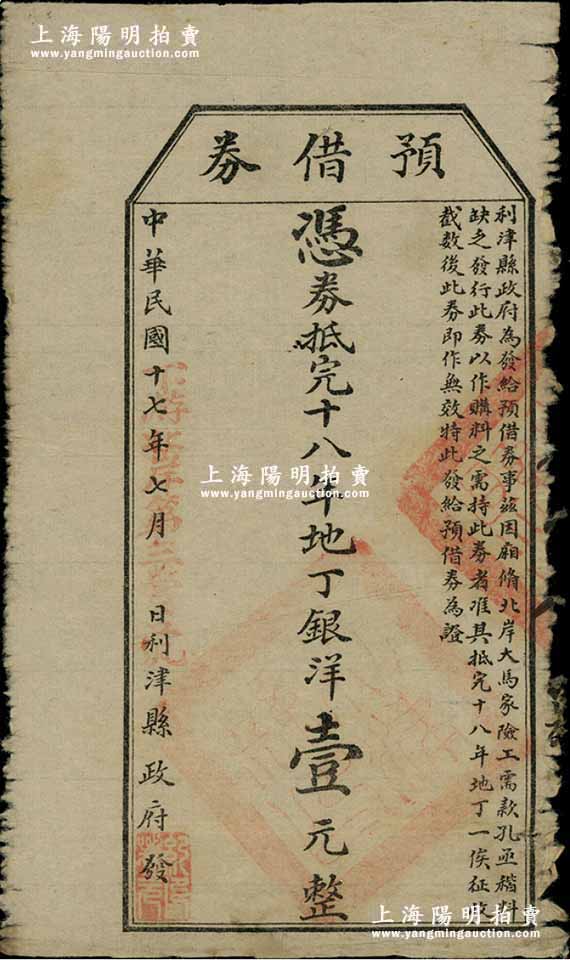 上海陽明拍賣
www.yangmingauction.com
預借券
利津縣政府為發給預借券事茲因廂脩北岸大馬家險工需款孔亟稭料
缺乏發行此券以作購料之需持此券者准其抵完十八年地丁一俟征收
截数後此券即作無效特此發給預借券為證
憑券抵完十八年地丁銀洋壹元整
中華民國十七年七月 日利津縣政府發
上海陽明拍賣
www.yangmingauction.com
上海陽明拍賣
www.yangmingauction.com